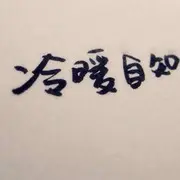 冷暖自知